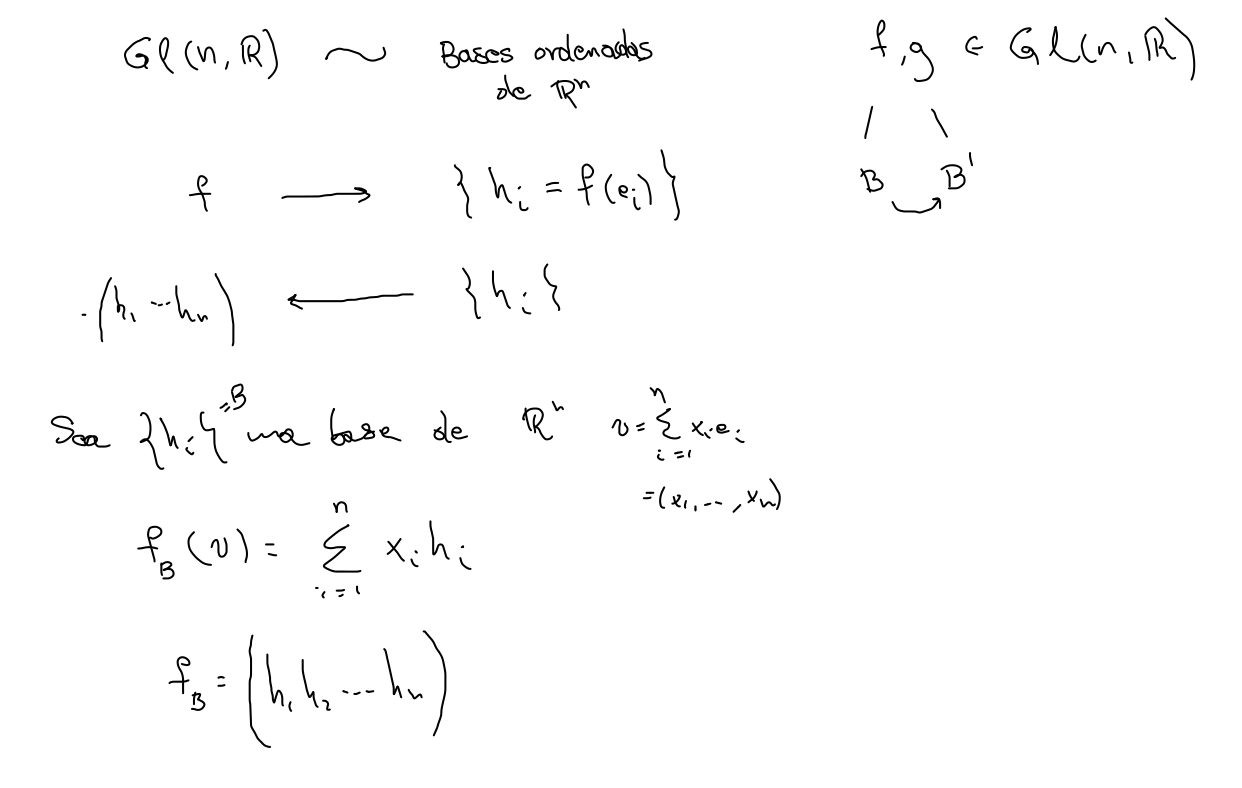 Gl(n, ℝ) ~ Bases ordenadas
de ℝⁿ
f ⟶ { hᵢ = f(eᵢ) }
(h₁ ... hₙ) ⟵ { hᵢ }
Sea {hᵢ} = B una base de ℝⁿ v = ∑ᵢ₌₁ⁿ xᵢeᵢ
= (x₁, ..., xₙ)
f_B (v) = ∑ᵢ₌₁ⁿ xᵢ hᵢ
f_B = (h₁ h₂ ... hₙ)
f, g ∈ Gl(n, ℝ)
/ \
B B'